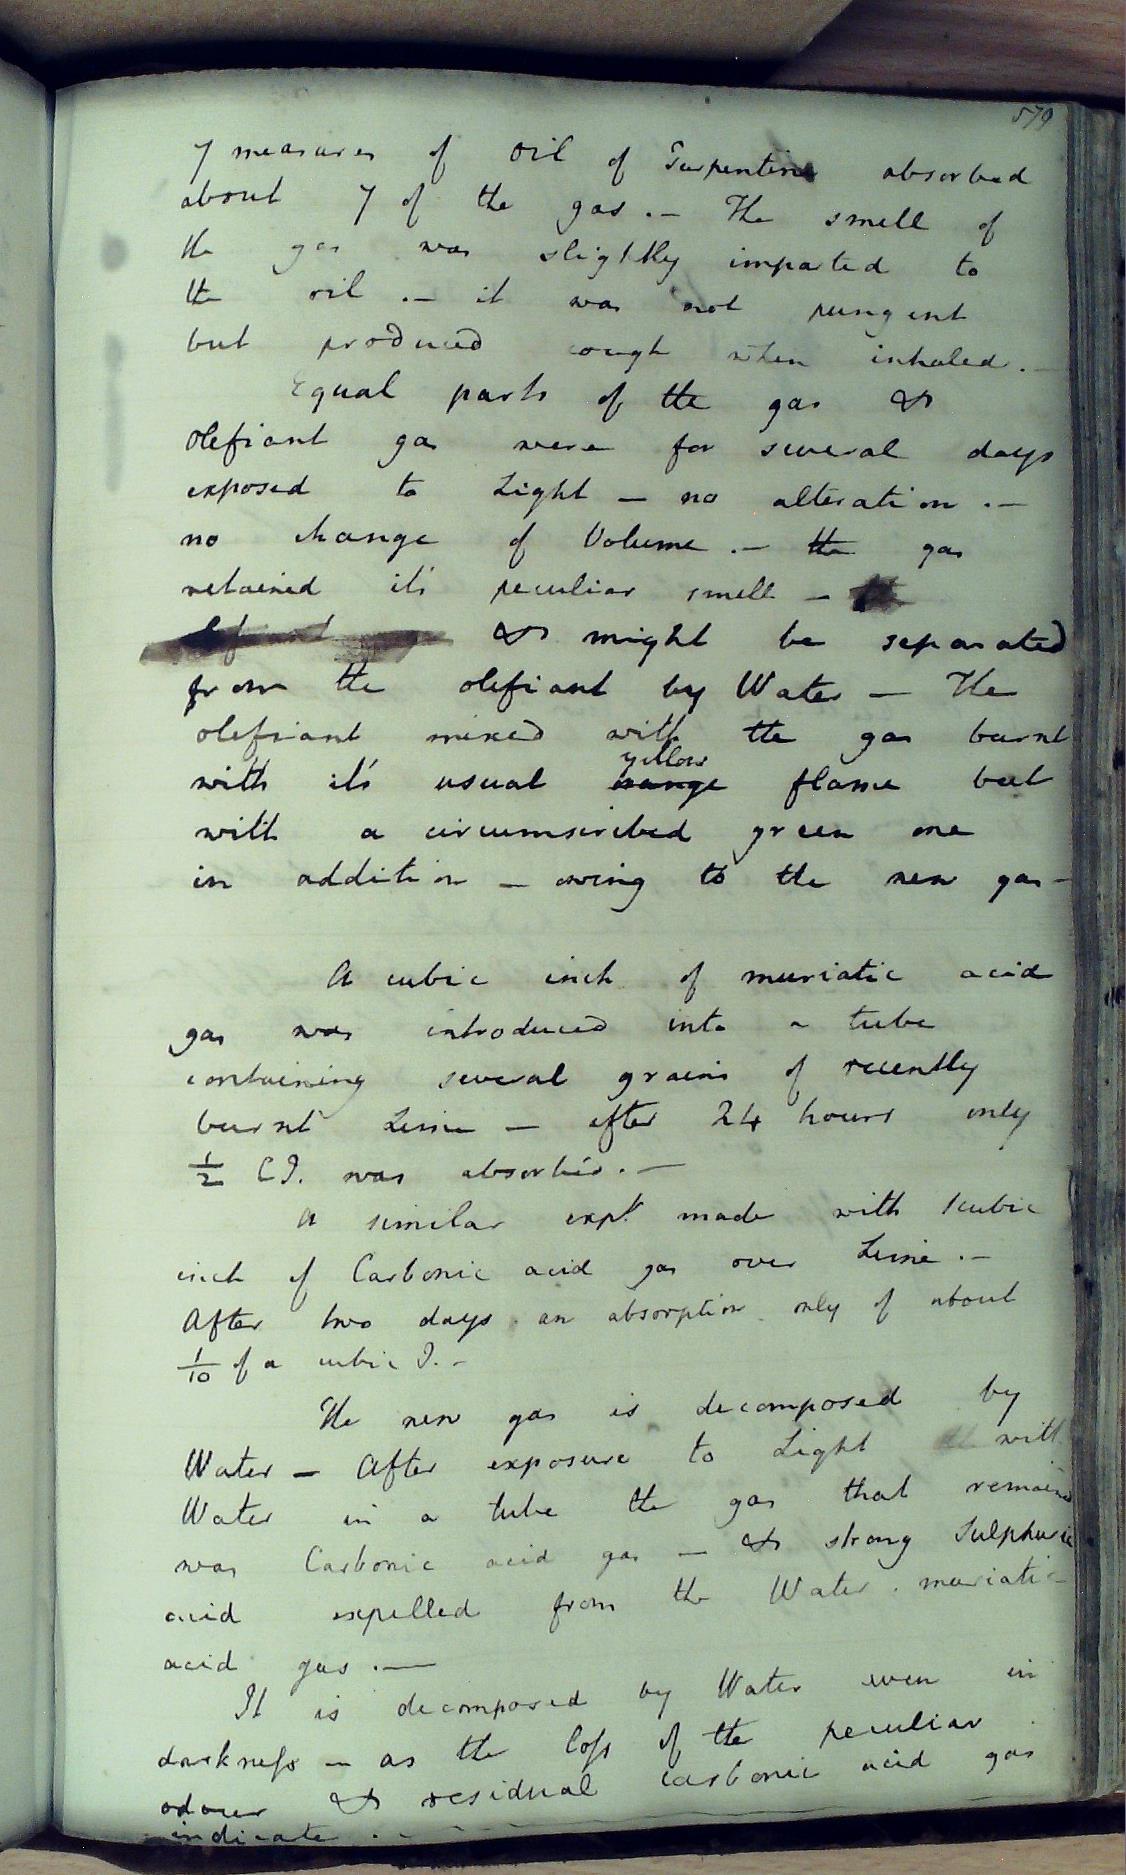 579
7 measures of oil of Turpentine absorbed
about 7 of the gas.— The smell of
the gas was slightly imparted to
the oil.— it was not pungent
but produced cough when inhaled.—
Equal parts of the gas &
olefiant gas were for several days
exposed to Light — no alteration.—
no change of Volume.— the gas
retained it's peculiar smell —
& might be separated
from the olefiant by Water — The
olefiant mixed with the gas burnt
yellow
with it's usual orange flame but
with a circumscribed green one
in addition — owing to the new gas—
A cubic inch of muriatic acid
gas was introduced into a tube
containing several grains of recently
burnt Lime — after 24 hours only
1/2 C I. was absorbed.—
A similar expt. made with 1cubic
inch of Carbonic acid gas over Lime.—
After two days an absorption only of about
1/10 of a cubic I.—
The new gas is decomposed by
Water — After exposure to Light with
Water in a tube the gas that remained
was Carbonic acid gas — & strong Sulphuric
acid expelled from the Water muriatic
acid gas.—
It is decomposed by Water even in
darkneſs — as the loſs of the peculiar
odour & residual carbonic acid gas
indicate.—